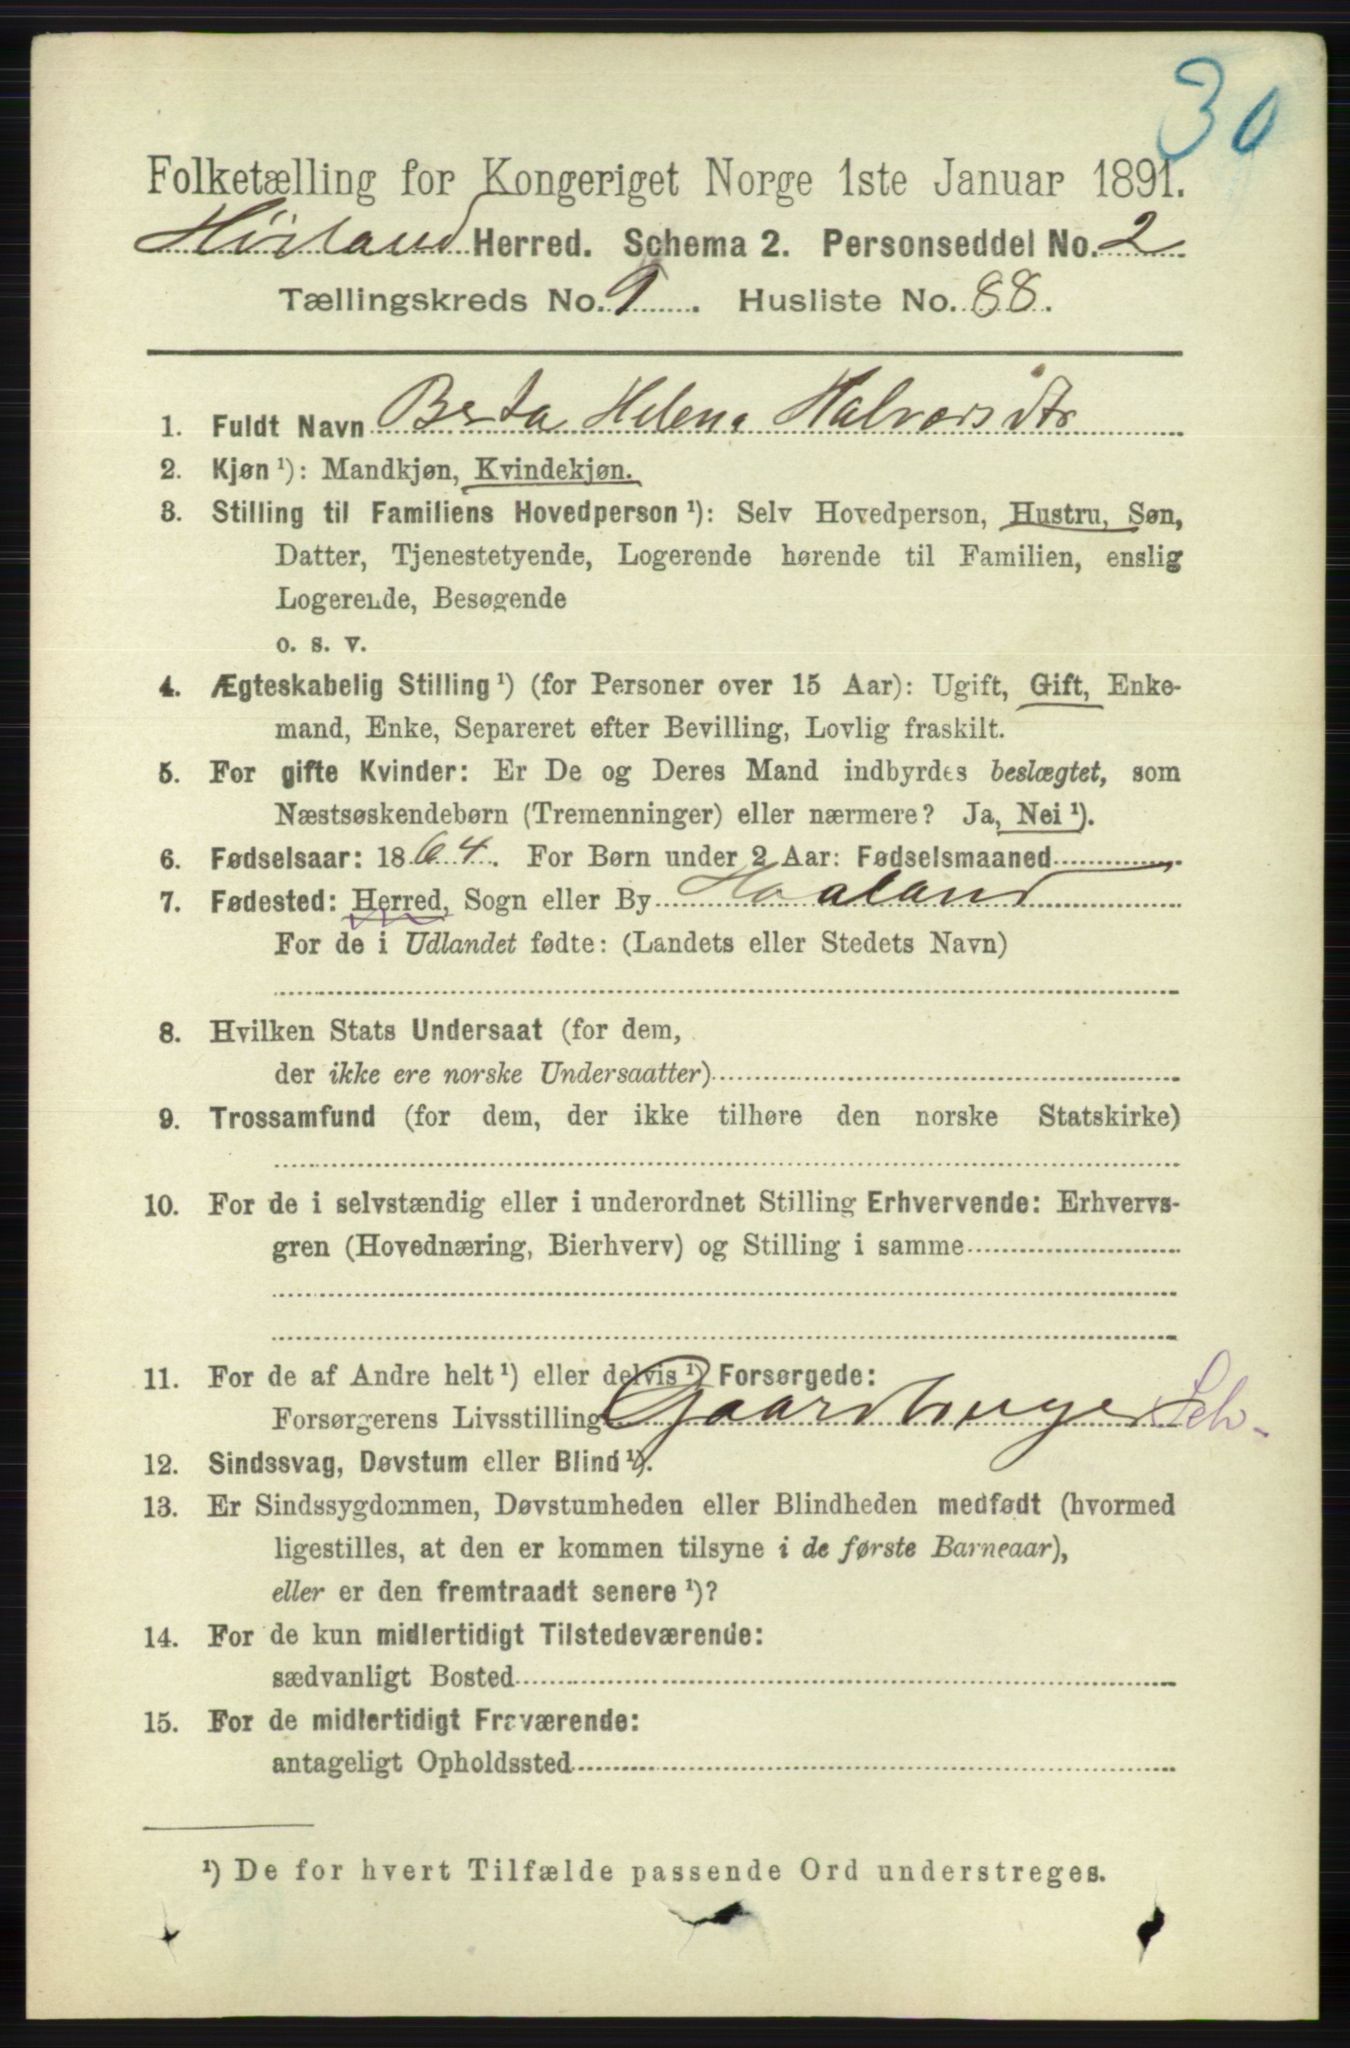 30
Folketælling for Kongeriget Norge 1ste Januar 1891.
Høiland Herred. Schema 2. Personseddel No. 2
Tællingskreds No. 9. Husliste No. 88.
1. Fuldt Navn Berta Helene Halvorsdtr
2. Kjøn ¹): Mandkjøn, Kvindekjøn.
3. Stilling til Familiens Hovedperson ¹): Selv Hovedperson, Hustru, Søn,
Datter, Tjenestetyende, Logerende hørende til Familien, enslig
Logerende, Besøgende
o. s. v.
4. Ægteskabelig Stilling ¹) (for Personer over 15 Aar): Ugift, Gift, Enke-
mand, Enke, Separeret efter Bevilling, Lovlig fraskilt.
5. For gifte Kvinder: Er De og Deres Mand indbyrdes beslægtet, som
Næstsøskendebørn (Tremenninger) eller nærmere? Ja, Nei ¹).
6. Fødselsaar: 1864. For Børn under 2 Aar: Fødselsmaaned
7. Fødested: Herred, Sogn eller By Haaland
For de i Udlandet fødte: (Landets eller Stedets Navn)
8. Hvilken Stats Undersaat (for dem,
der ikke ere norske Undersaatter)
9. Trossamfund (for dem, der ikke tilhøre den norske Statskirke)
10. For de i selvstændig eller i underordnet Stilling Erhvervende: Erhvervs-
gren (Hovednæring, Bierhverv) og Stilling i samme
11. For de af Andre helt ¹) eller delvis ¹) Forsørgede:
Forsørgerens Livsstilling Gaardbruger Selv-
12. Sindssvag, Døvstum eller Blind ¹).
13. Er Sindssygdommen, Døvstumheden eller Blindheden medfødt (hvormed
ligestilles, at den er kommen tilsyne i de første Barneaar),
eller er den fremtraadt senere ¹)?
14. For de kun midlertidigt Tilstedeværende:
sædvanligt Bosted
15. For de midlertidigt Fraværende:
antageligt Opholdssted
¹) De for hvert Tilfælde passende Ord understreges.